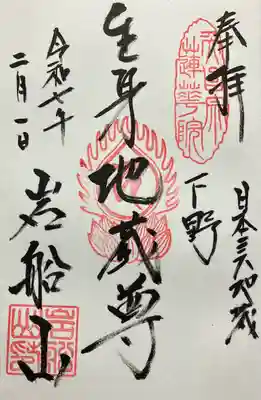 奉拝
日本三大地蔵
下野
蓮華院
生身地蔵尊
岩船山
令和七年
二月一日